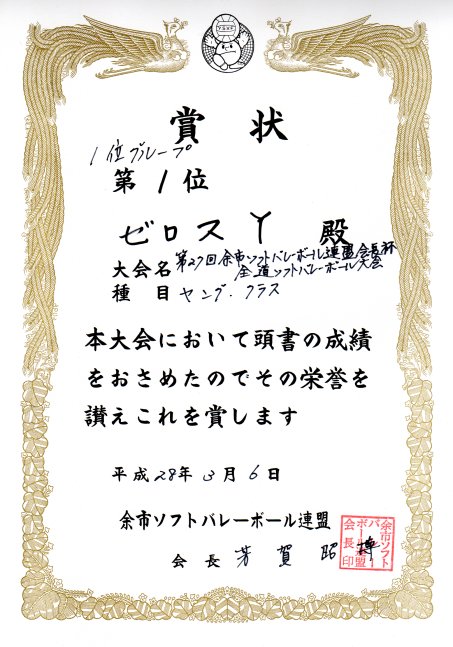 賞状
1位グループ
第1位
ゼロスY 殿
大会名 第27回余市ソフトバレーボール連盟会長杯
全道ソフトバレーボール大会
種目 ヤング・クラス
本大会において頭書の成績
をおさめたのでその栄誉を
讃えこれを賞します
平成28年3月6日
余市ソフトバレーボール連盟
会長 芳賀昭博
余市ソフト
バレー
ボール連盟
会長印